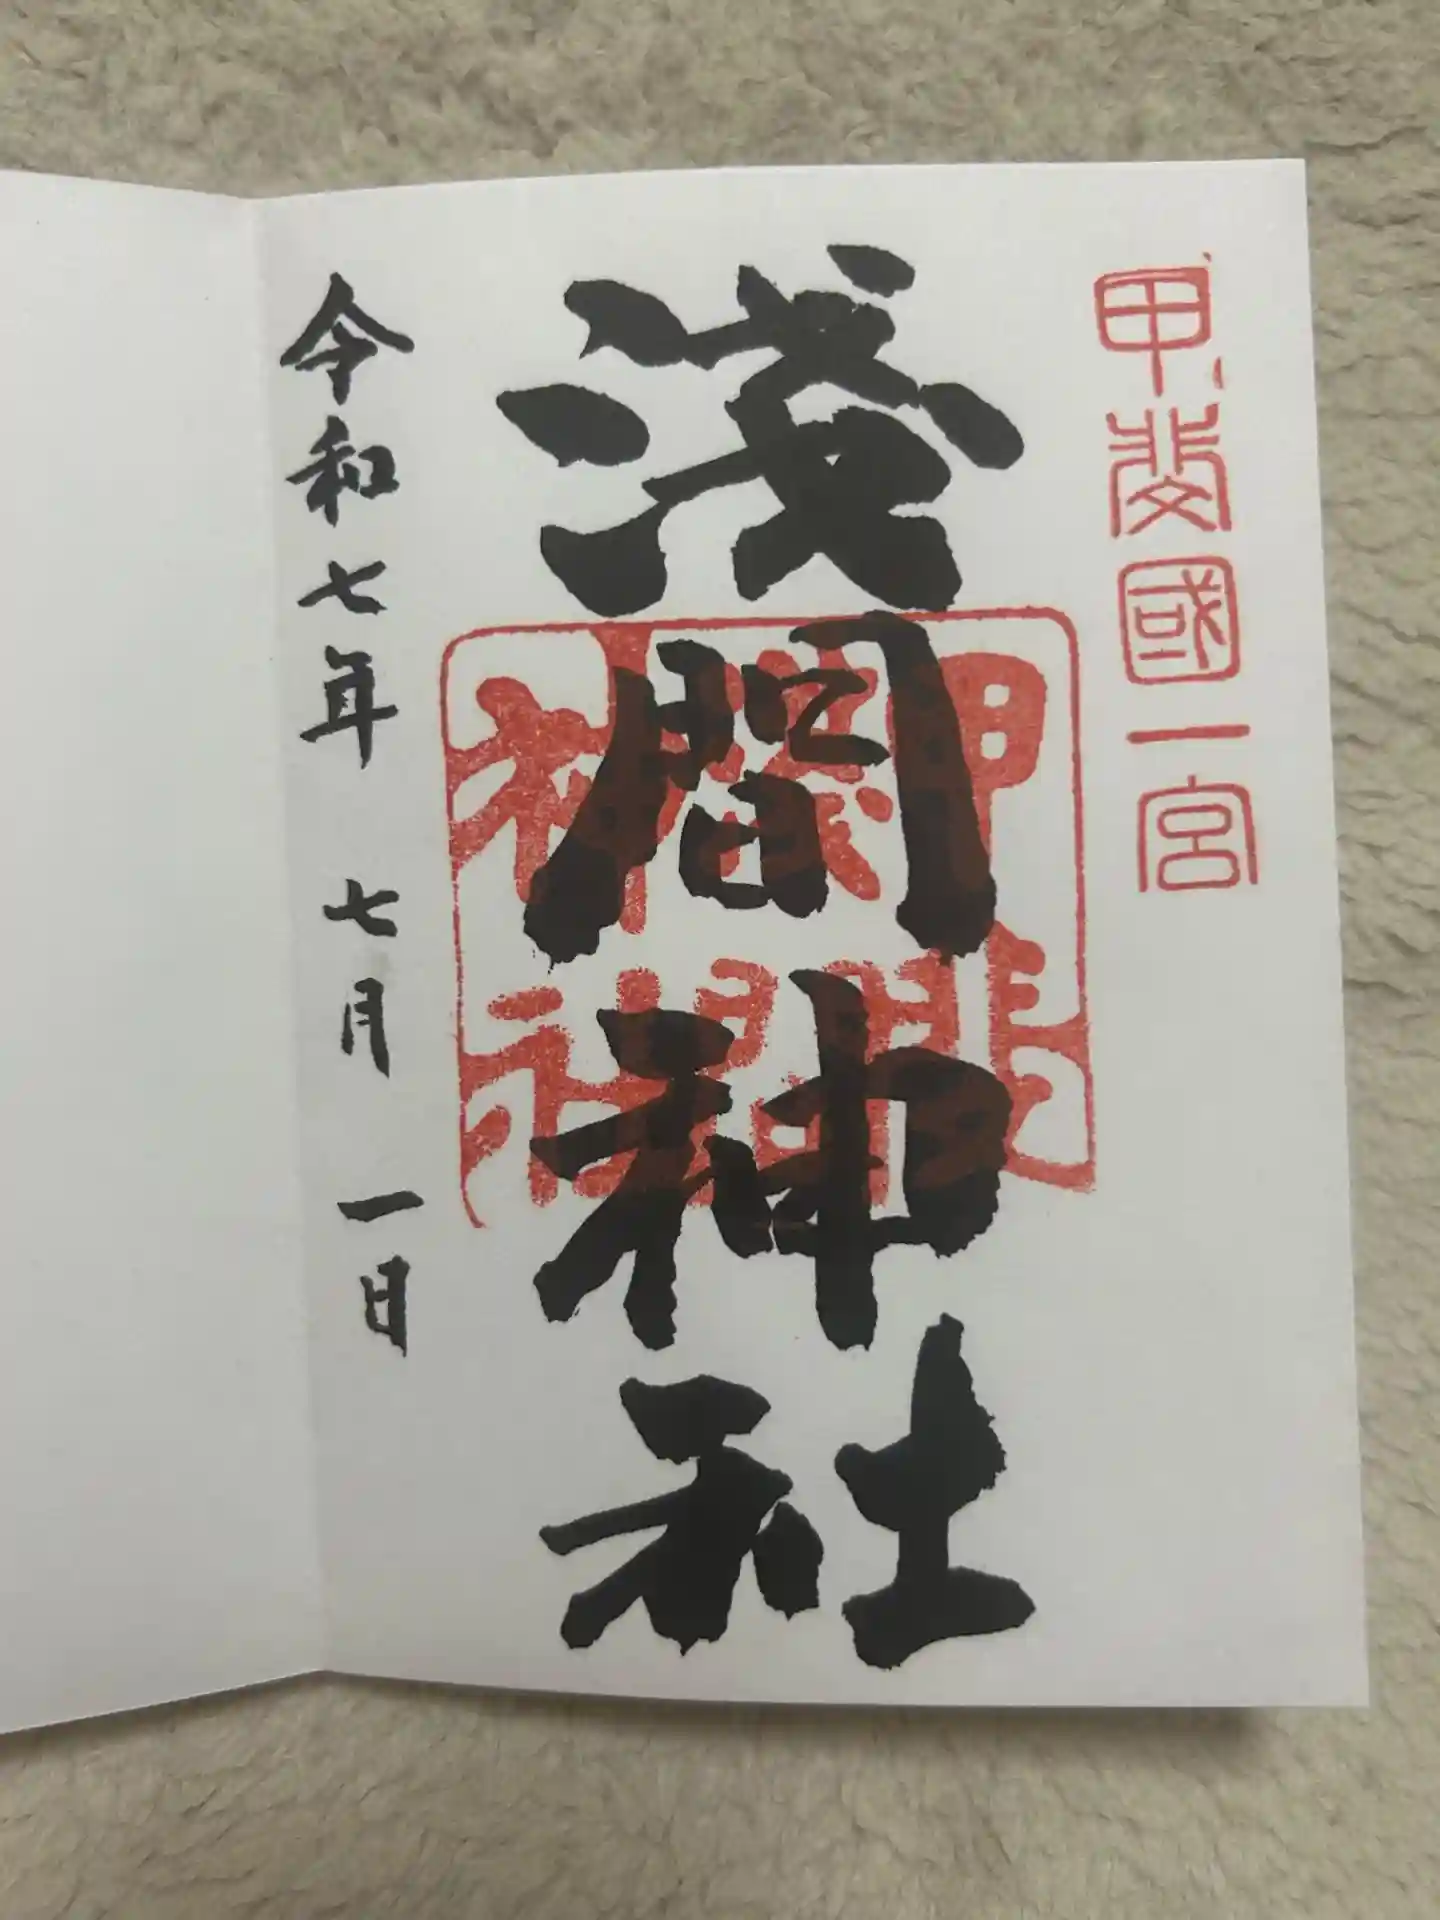 甲斐國一宮
浅間神社
甲斐
淺間
神社
令和七年 七月 一日